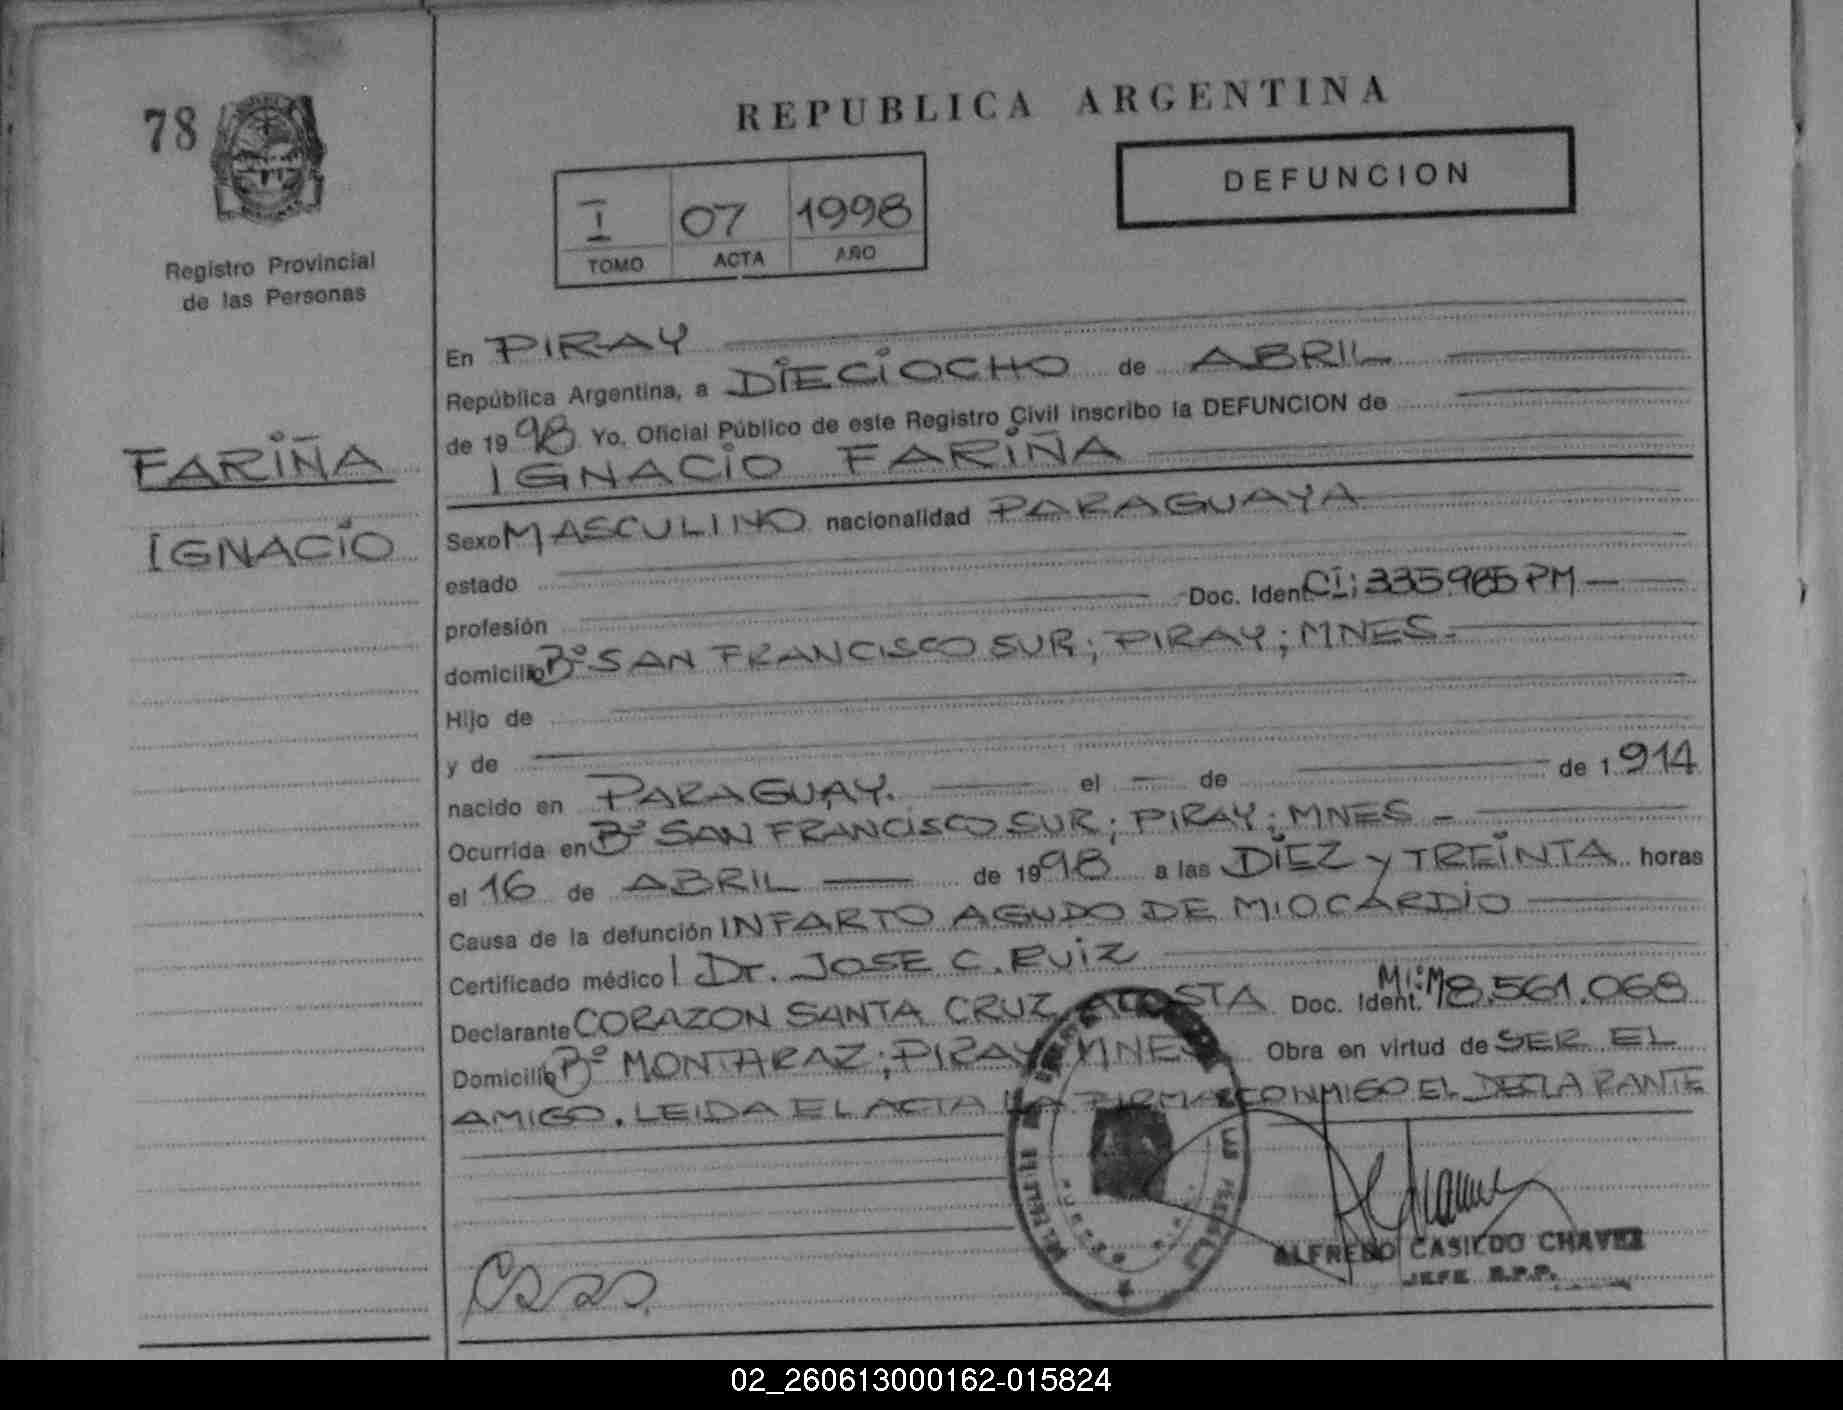 78
REPUBLICA ARGENTINA
DEFUNCION
I 07 1998
TOMO ACTA AÑO
Registro Provincial
de las Personas
FARIÑA
IGNACIO
En PIRAY
República Argentina, a DIECIOCHO de ABRIL
de 1998 Yo, Oficial Público de este Registro Civil inscribo la DEFUNCION de
IGNACIO FARIÑA
Sexo MASCULINO nacionalidad PARAGUAYA
estado
profesión Doc. Ident. CI: 335.985 PM
domicilio Bº SAN FRANCISCO SUR; PIRAY; MNES.
Hijo de
y de
nacido en PARAGUAY. el de de 1.914
Ocurrida en Bº SAN FRANCISCO SUR; PIRAY; MNES
el 16 de ABRIL de 1998 a las DIEZ Y TREINTA horas
Causa de la defunción INFARTO AGUDO DE MIOCARDIO
Certificado médico Dr. JOSE C. RUIZ
Declarante CORAZON SANTA CRUZ ACOSTA Doc. Ident. M.I: M8.561.068
Domicilio Bº MONTARAZ; PIRAY MNES Obra en virtud de SER EL
AMIGO. LEIDA EL ACTA LA FIRMA CONMIGO EL DECLARANTE
ALFREDO CASILDO CHAVEZ
JEFE R.P.P.
02_260613000162-015824